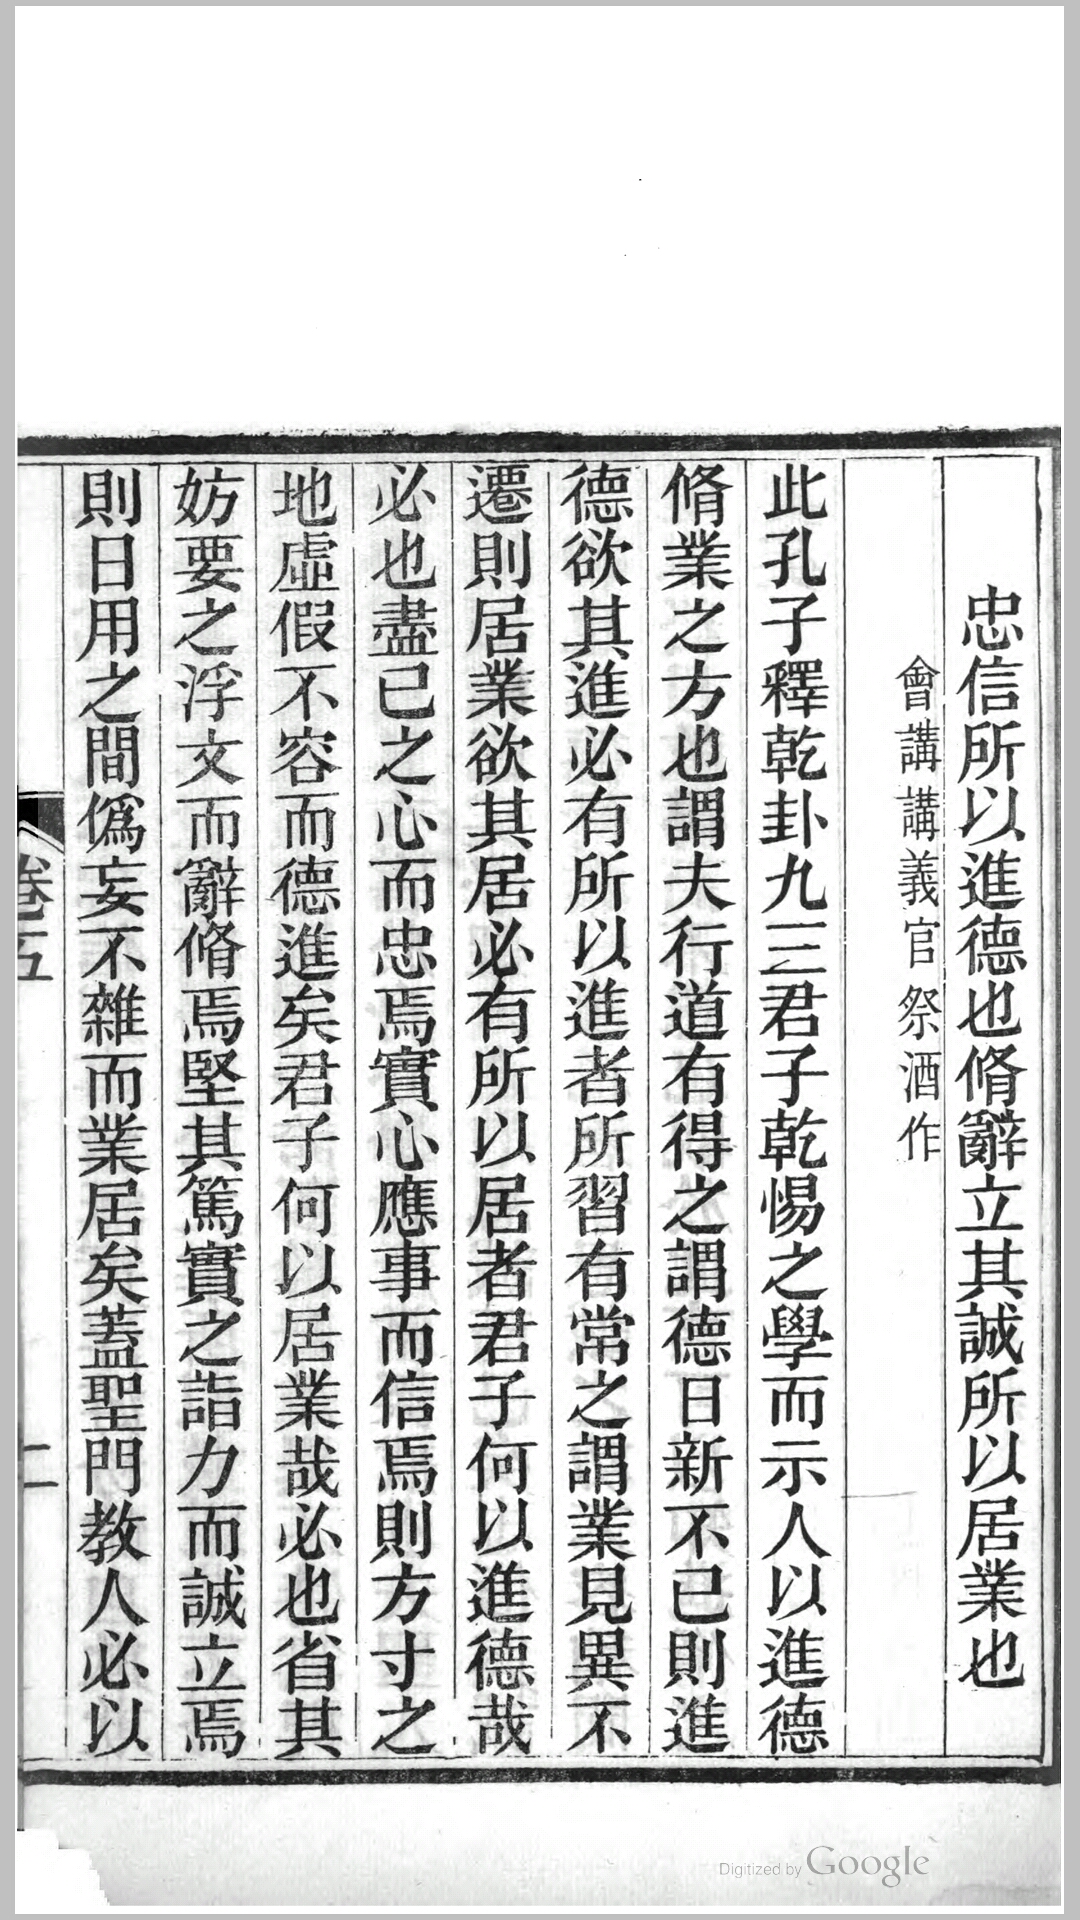 忠信所以進德也脩辭立其誠所以居業也
會講講義官祭酒作
此孔子釋乾卦九三君子乾惕之學而示人以進德
脩業之方也謂夫行道有得之謂德日新不已則進
德欲其進必有所以進者所習有常之謂業見異不
遷則居業欲其居必有所以居者君子何以進德哉
必也盡己之心而忠焉實心應事而信焉則方寸之
地虛假不容而德進矣君子何以居業哉必也省其
妨要之浮文而辭脩焉堅其篤實之詣力而誠立焉
則日用之間僞妄不雜而業居矣蓋聖門教人必以
卷五
二
Digitized by Google